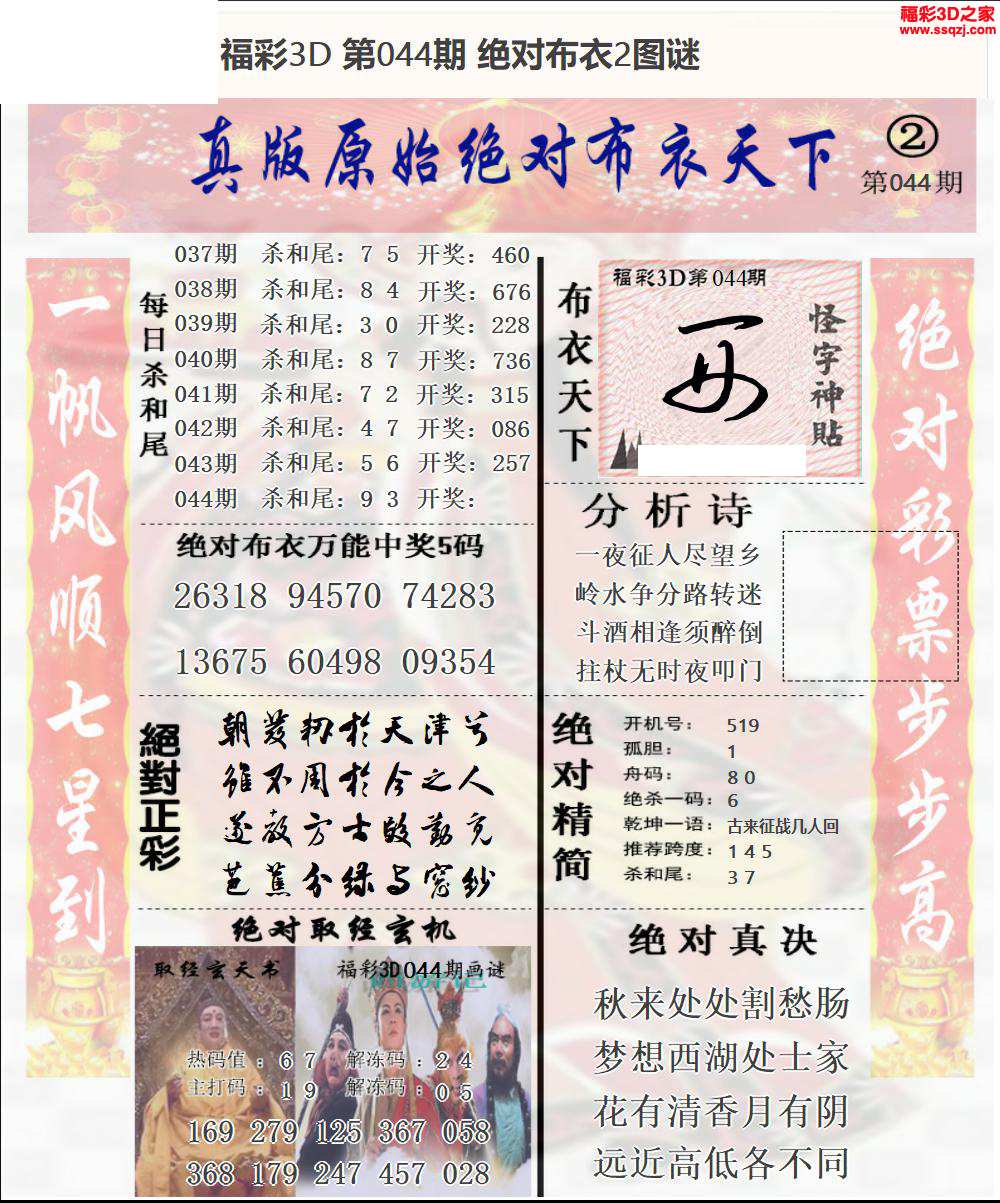 福彩3D之家
www.ssqzj.com
福彩3D 第044期 绝对布衣2图谜
真版原始绝对布衣天下
②
第044期
一帆风顺七星到
每日杀和尾
037期 杀和尾：7 5 开奖：460
038期 杀和尾：8 4 开奖：676
039期 杀和尾：3 0 开奖：228
040期 杀和尾：8 7 开奖：736
041期 杀和尾：7 2 开奖：315
042期 杀和尾：4 7 开奖：086
043期 杀和尾：5 6 开奖：257
044期 杀和尾：9 3 开奖：
绝对布衣万能中奖5码
26318 94570 74283
13675 60498 09354
絕對正彩
朝發轫於天津兮
雖不周於今之人
遂教方士殷勤觅
芭蕉分绿与窗纱
绝对取经玄机
取经玄天书
福彩3D044期画谜
热码值：6 7 解冻码：2 4
主打码：1 9 解冻码：0 5
169 279 125 367 058
368 179 247 457 028
布衣天下
福彩3D第044期
怪字神貼
分析诗
一夜征人尽望乡
岭水争分路转迷
斗酒相逢须醉倒
拄杖无时夜叩门
绝对精简
开机号： 519
孤胆： 1
舟码： 8 0
绝杀一码：6
乾坤一语：古来征战几人回
推荐跨度：1 4 5
杀和尾： 3 7
绝对真决
秋来处处割愁肠
梦想西湖处士家
花有清香月有阴
远近高低各不同
绝对彩票步步高